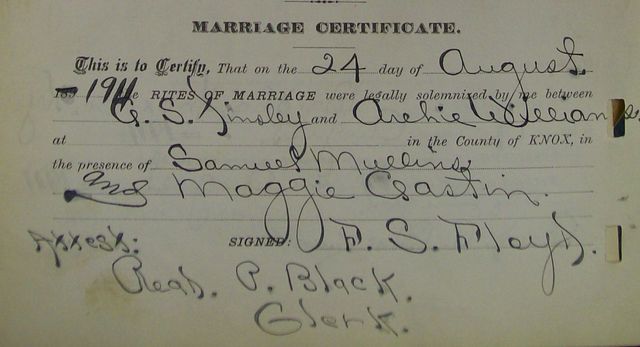 MARRIAGE CERTIFICATE.
This is to Certify, That on the 24 day of August
1911 the RITES OF MARRIAGE were legally solemnized by me between
G. S. Kinsley and Archie Williams.
at in the County of KNOX, in
the presence of Samuel Mullins
and Maggie Gastin.
SIGNED: F. S. Floyd.
Attest:
Read. P. Black.
Clerk.